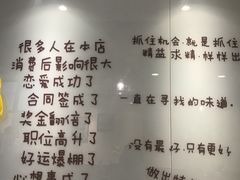 很多人在本店
消费后影响很大
恋爱成功了
合同签成了
奖金翻倍了
职位高升了
好运爆棚了
心想事成了
抓住机会.就是抓住
精益求精.样样出
一直在寻找的味道.
没有最好.只有更好
做出特